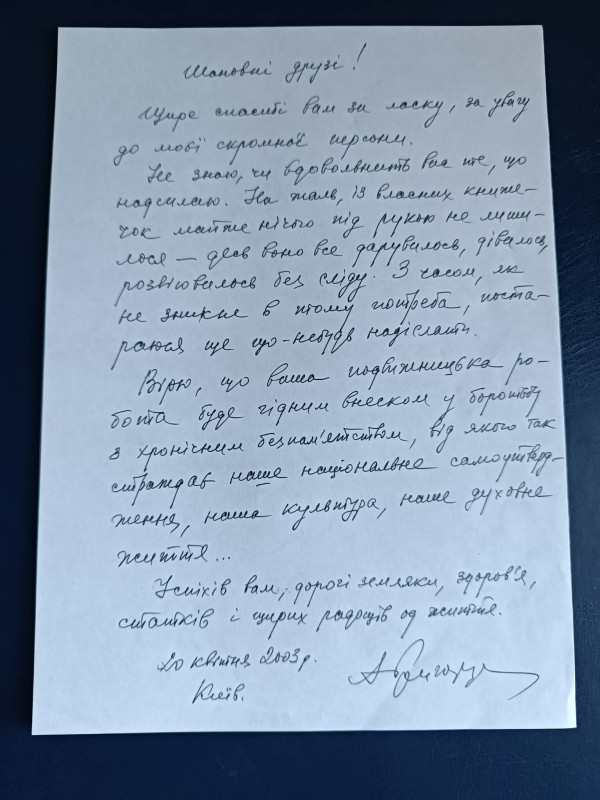 Шановні друзі!
Щире спасибі вам за ласку, за увагу
до моєї скромної персони.
Не знаю, чи вдовольнить вас те, що
надсилаю. На жаль, із власних книже-
чок майже нічого під рукою не лиши-
лося — десь воно все дарувалось, дівалось,
розвіювалось без сліду. З часом, як
не зникне в тому потреба, поста-
раюся ще що-небудь надіслати.
Вірю, що ваша подвижницька ро-
бота буде гідним внеском у боротьбу
з хронічним безпам'ятством, від якого так
страждає наше національне самоутверд-
ження, наша культура, наше духовне
життя...
Успіхів вам, дорогі земляки, здоров'я,
статків і щирих радощів од життя.
20 квітня 2003 р.
Київ.